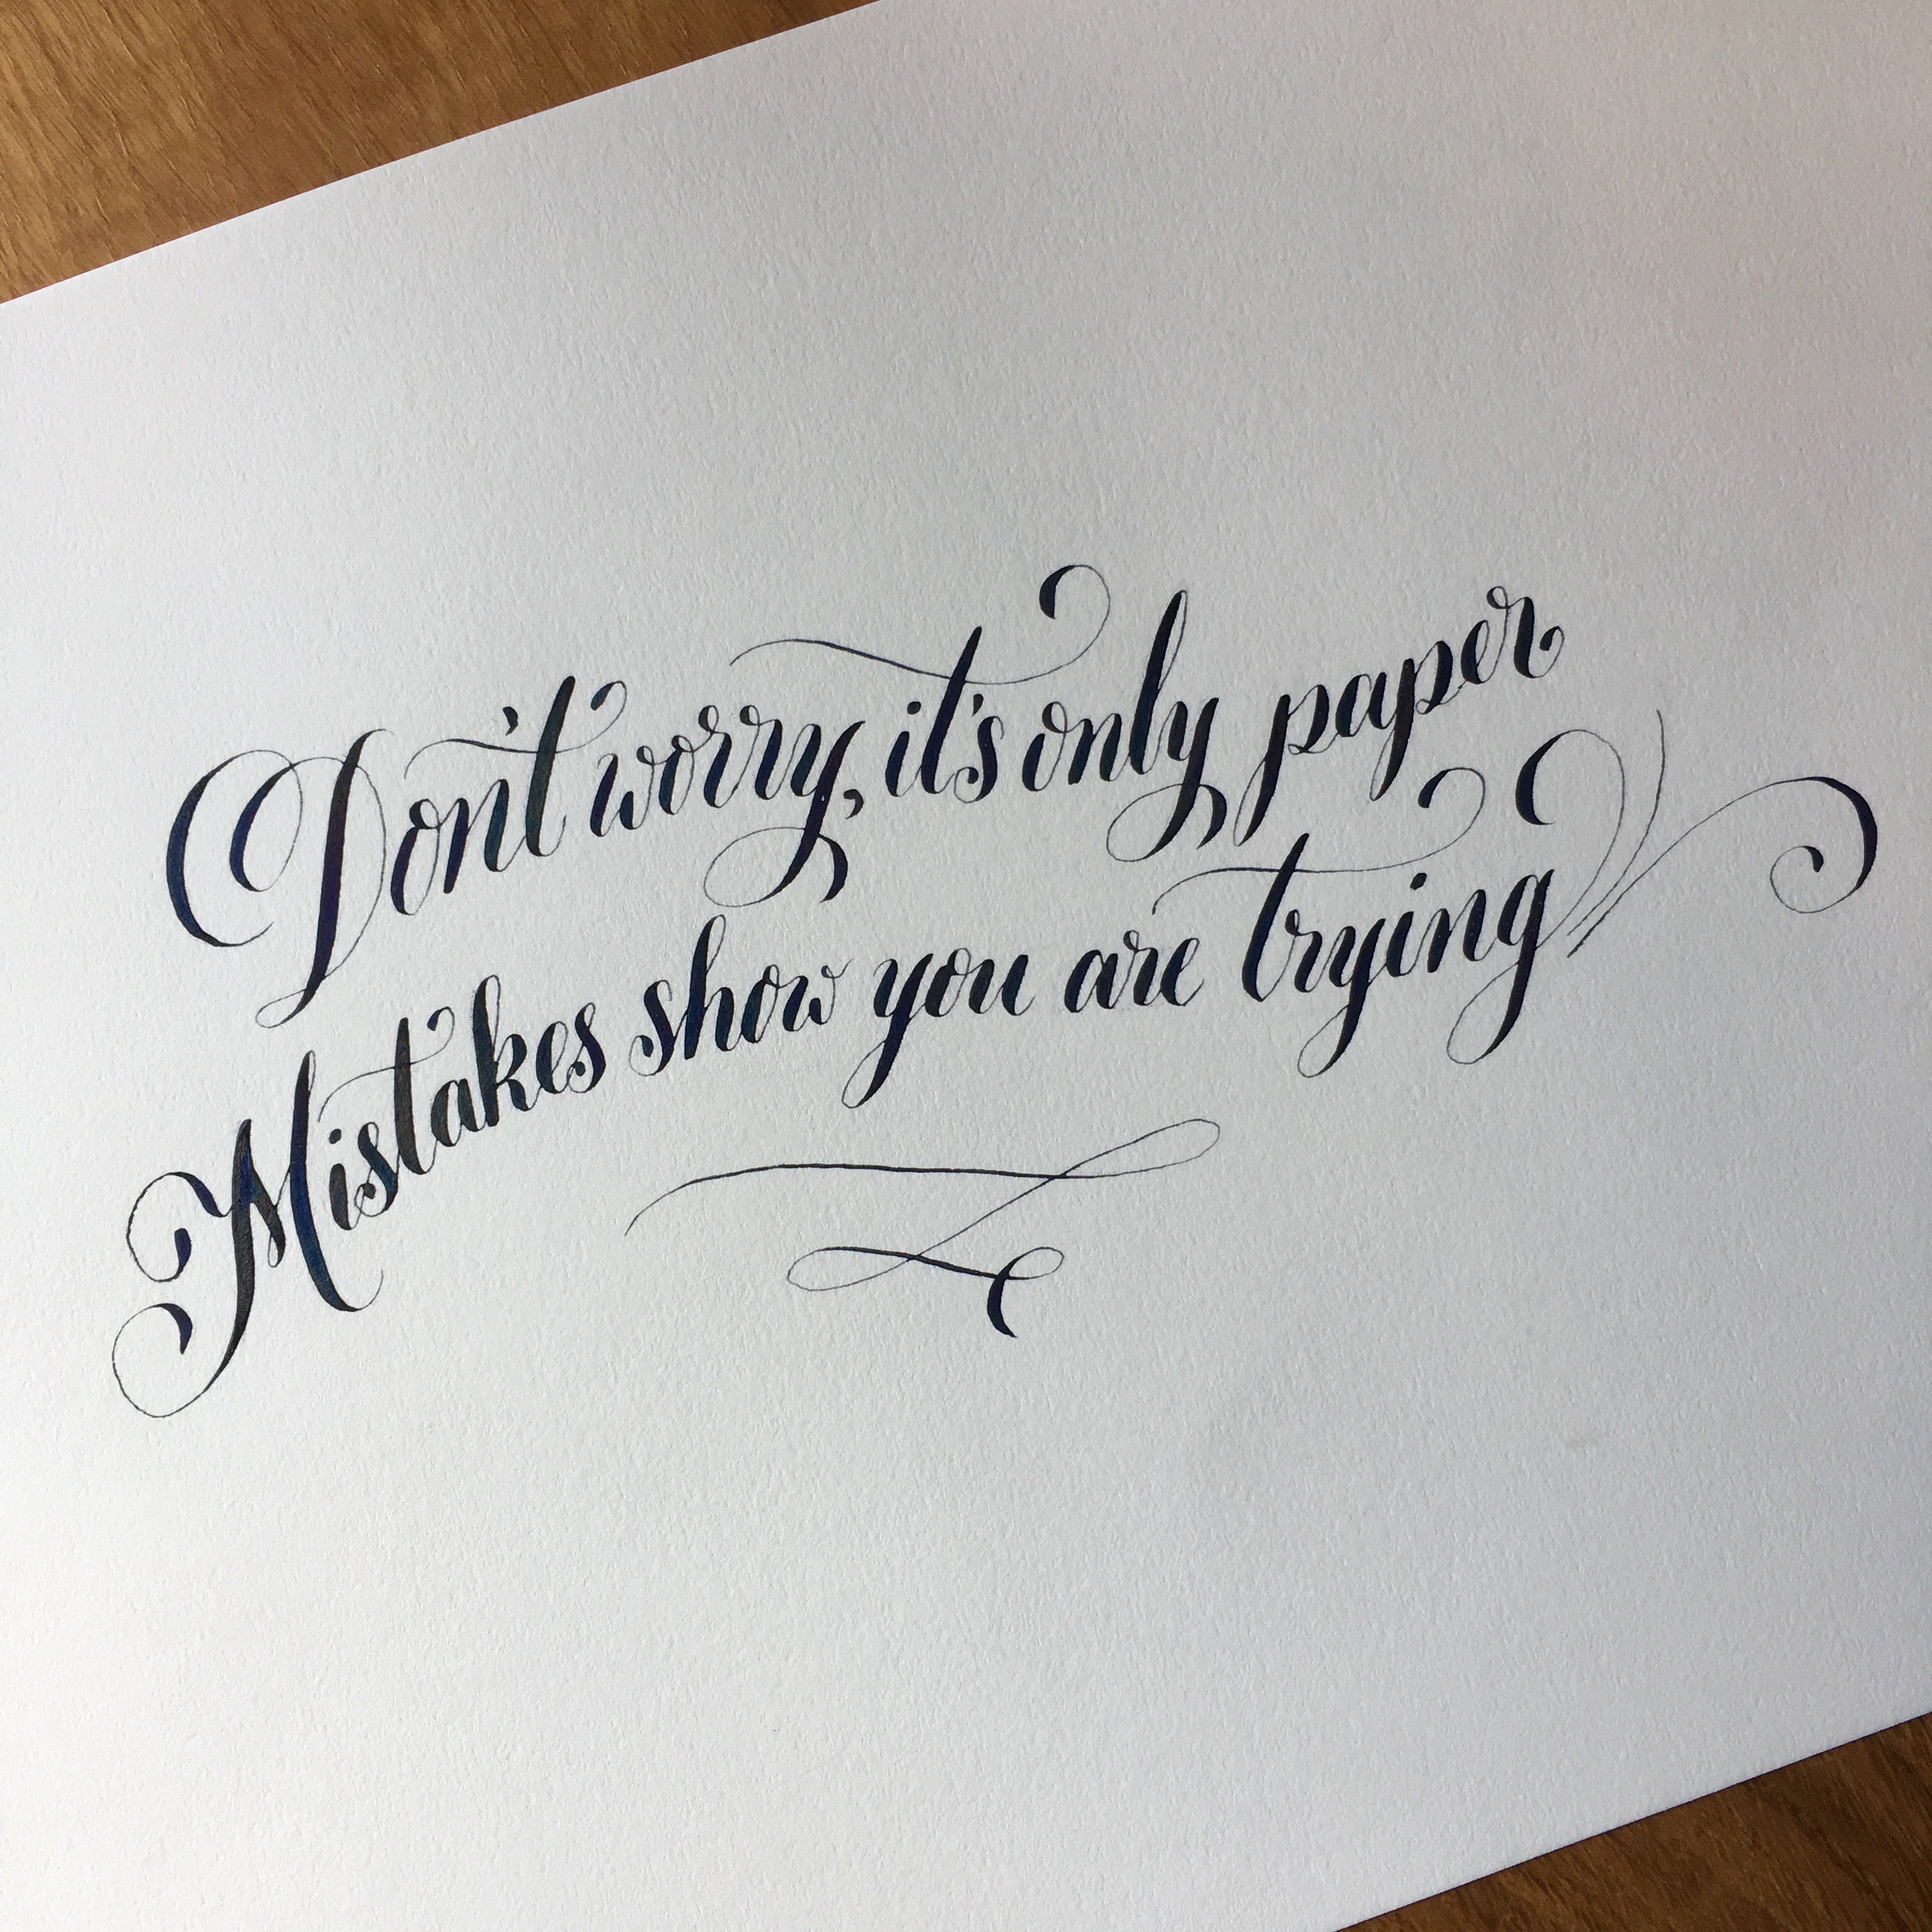 Don't worry, it's only paper
Mistakes show you are trying